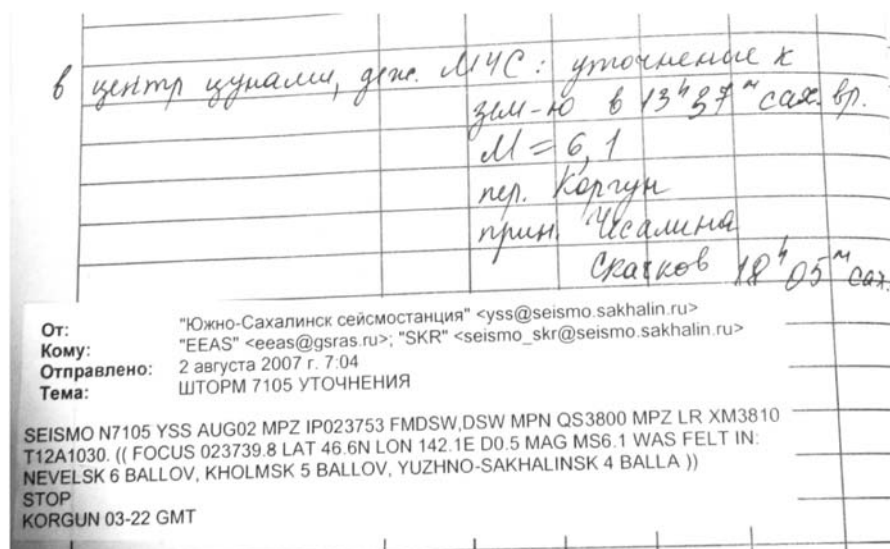 в центр цунами, деж. МЧС: уточнение к
зем-ю в 13ч 37м сах. вр.
М = 6,1
пер. Коргун
прин. Чисалина
Скачков 18ч 05м сах.
От: "Южно-Сахалинск сейсмостанция" <yss@seismo.sakhalin.ru>
Кому: "EEAS" <eeas@gsras.ru>; "SKR" <seismo_skr@seismo.sakhalin.ru>
Отправлено: 2 августа 2007 г. 7:04
Тема: ШТОРМ 7105 УТОЧНЕНИЯ
SEISMO N7105 YSS AUG02 MPZ IP023753 FMDSW,DSW MPN QS3800 MPZ LR XM3810
T12A1030. (( FOCUS 023739.8 LAT 46.6N LON 142.1E D0.5 MAG MS6.1 WAS FELT IN:
NEVELSK 6 BALLOV, KHOLMSK 5 BALLOV, YUZHNO-SAKHALINSK 4 BALLA ))
STOP
KORGUN 03-22 GMT